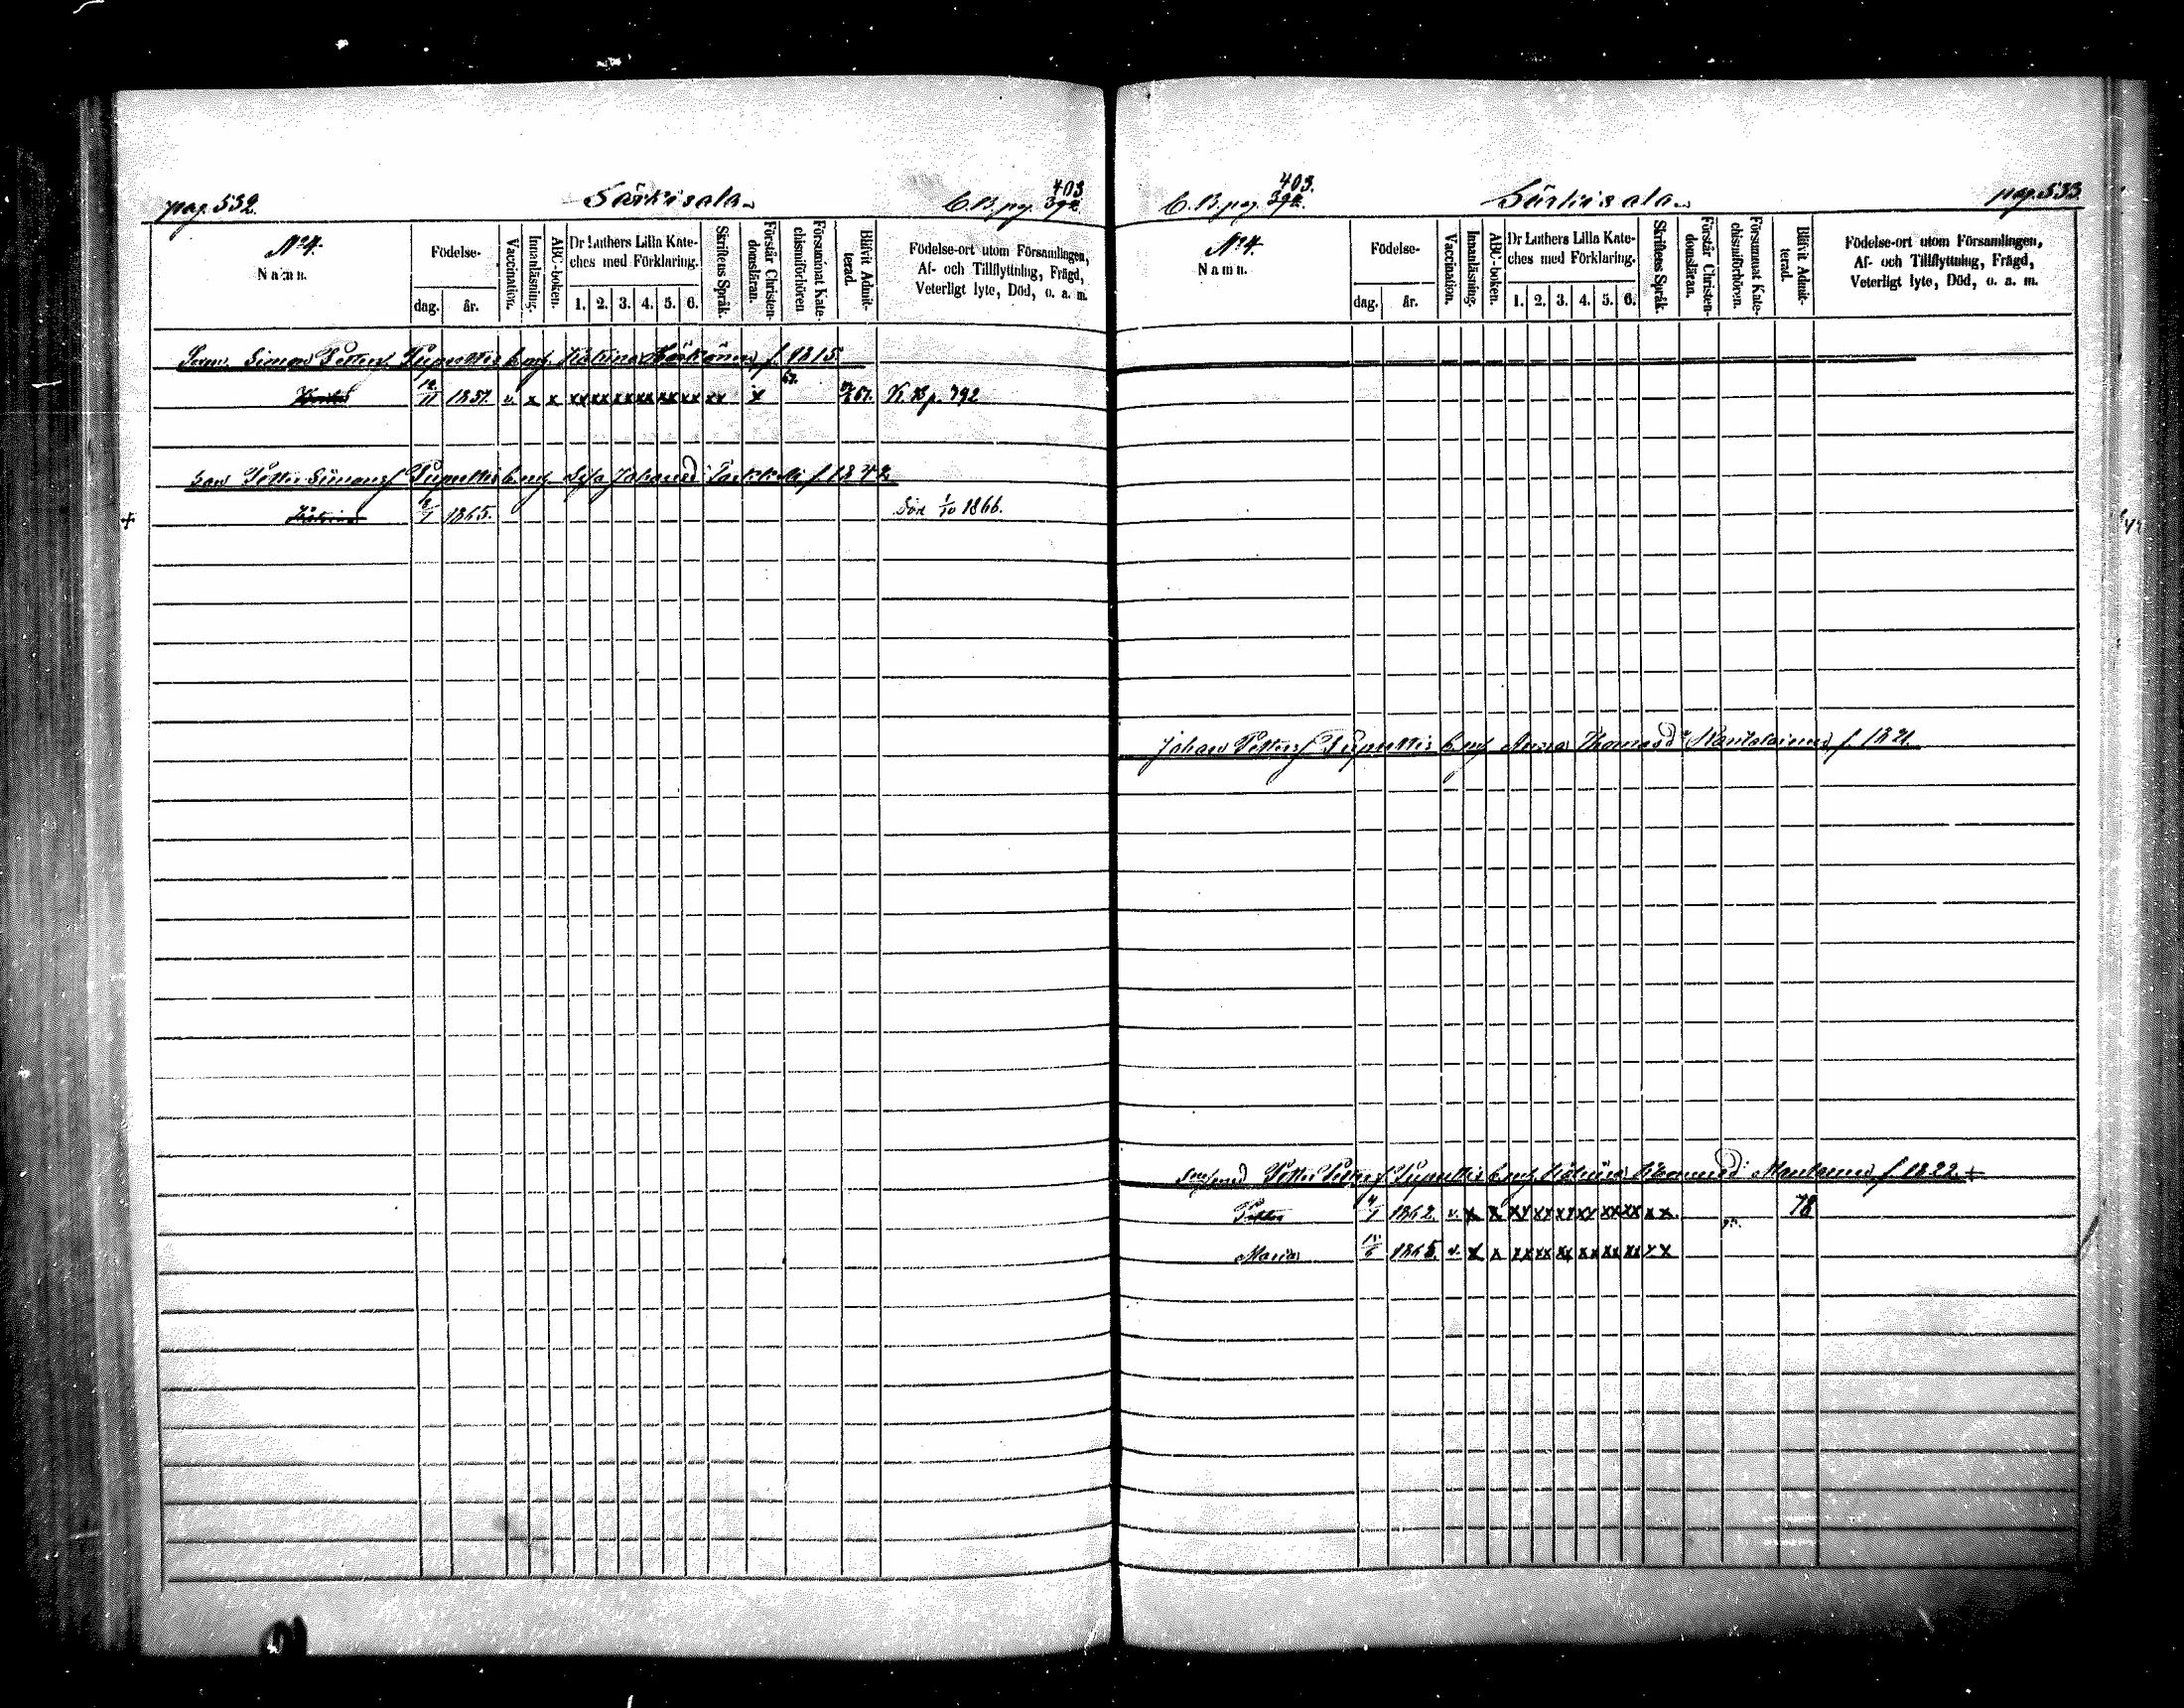 pag. 532.
Särkisala.
403
C.B. pag. 392.
No 4.
Namn.
Födelse-
dag.
år.
Vaccination.
Innanläsning.
ABC-boken.
Dr Luthers Lilla Kate-
ches med Förklaring.
1. 2. 3. 4. 5. 6.
Skriftens Språk.
Förstår Christen-
domsläran.
Försummat Kate-
chismiförhören
Blifvit Admit-
terad.
Födelse-ort utom Församlingen,
Af- och Tillflyttning, Frägd,
Veterligt lyte, Död, o. a. m.
Simon Petters. Pupultis f. 1815
12/11 1851. v. x x xx xx xx xx xx xx xx x 67. K. B. p. 792
Petter Simons Pupultis Johansd: f. 1842
+ Katrina 1865. Död 1/10 1866.
403.
C.B. pag. 392.
Särkisala.
pag. 533.
No 4.
Namn.
Födelse-
dag.
år.
Vaccination.
Innanläsning.
ABC-boken.
Dr Luthers Lilla Kate-
ches med Förklaring.
1. 2. 3. 4. 5. 6.
Skriftens Språk.
Förstår Christen-
domsläran.
Försummat Kate-
chismiförhören.
Blifvit Admit-
terad.
Födelse-ort utom Församlingen,
Af- och Tillflyttning, Frägd,
Veterligt lyte, Död, o. a. m.
Johan Petters Pupultis Anna Thomasd: f. 1821.
Petter Petters Pupultis f. 1822. +
Petter 4/1 1862. v. x x xx xx xx xx xx xx xx 78
Maria 15/6 1865. v. x x xx xx xx xx xx xx xx